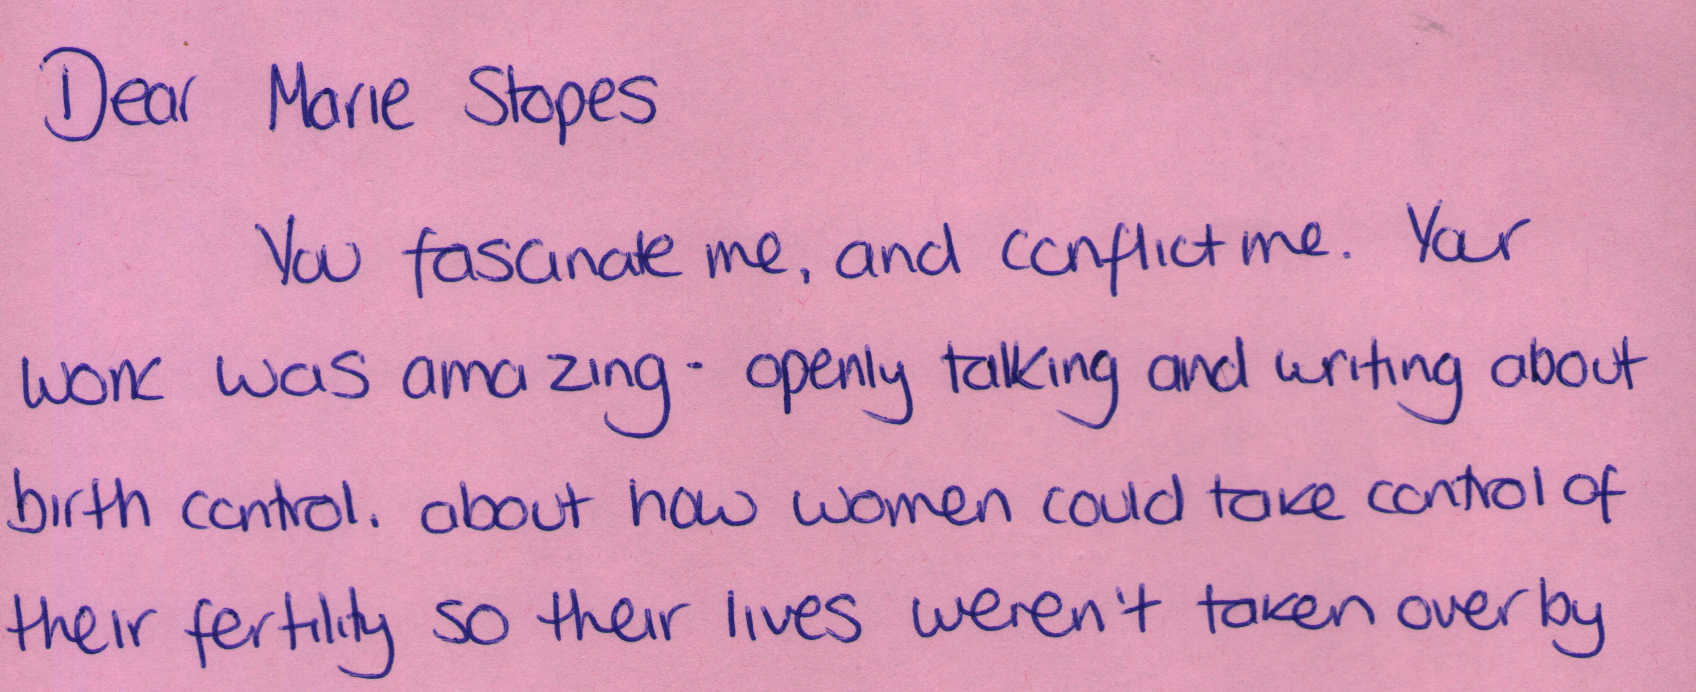 Dear Marie Stopes
You fascinate me, and conflict me. Your
work was amazing - openly talking and writing about
birth control. about how women could take control of
their fertility so their lives weren't taken over by